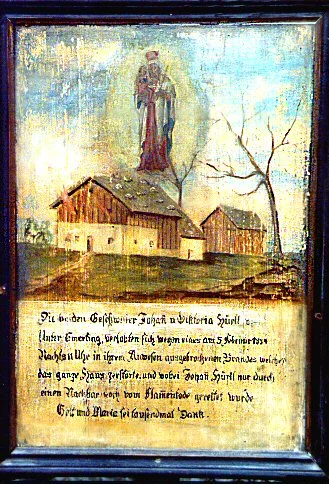 Die beiden Geschwister Johañ u Viktoria Hürtl,
Unter Emerting, verlobten sich wegen eines am 5 Februar
Nachts 11 Uhr in ihrem Anwesen ausgebrochenen Brandes welcher
das ganze Haus zerstörte, und wobei Johañ Hürtl nur durch
einen Nachbar noch vom Flamentode gerettet wurde
Gott und Maria sei tausendmal Dank.